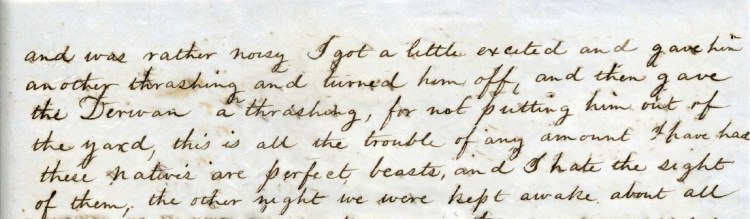 and was rather noisy I got a little excited and gave him
another thrashing and turned him off, and then gave
the Derwan a thrashing, for not putting him out of
the yard, this is all the trouble of any amount I have had
these natives are perfect beasts, and I hate the sight
of them, the other night we were kept awake about all